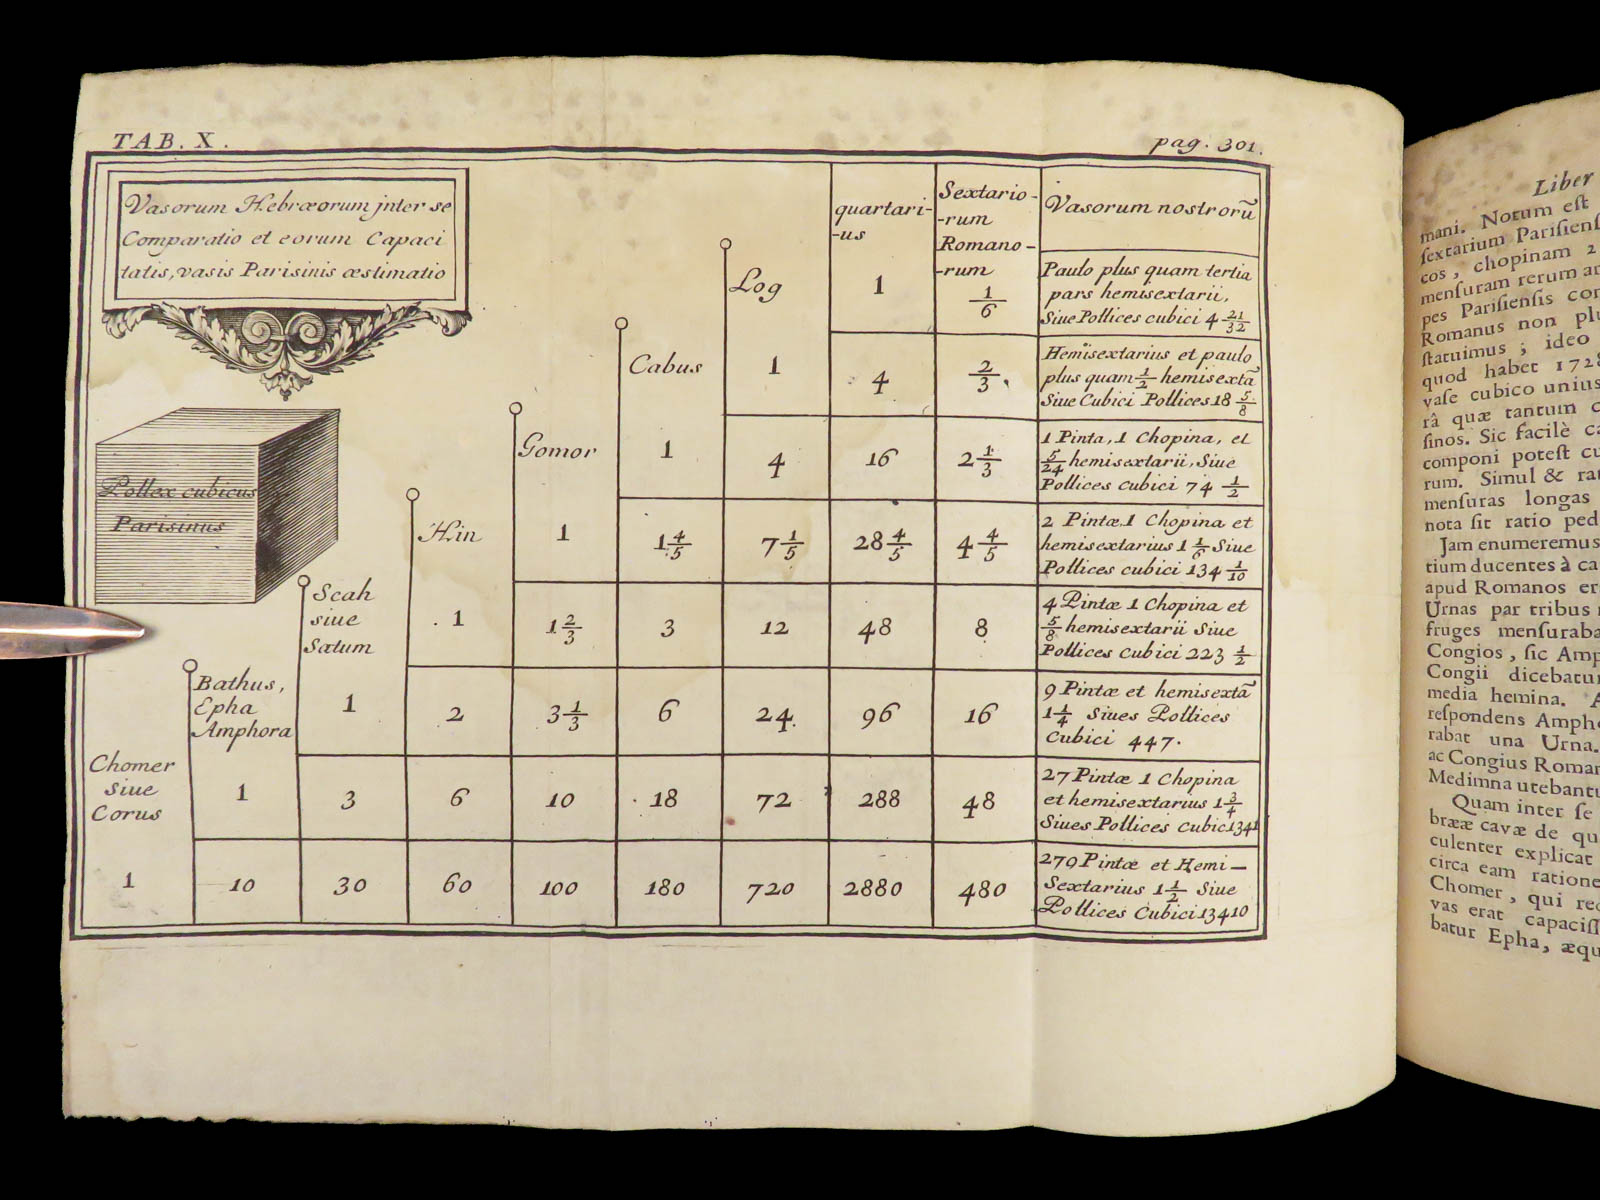 TAB. X.
pag. 301.
Vasorum Hebræorum jnter se
Comparatio et eorum Capaci
tatis, vasis Parisinis æstimatio
Pollex cubicus
Parisinus
quartari-
-us
1
Sextario-
-rum
Romano-
-rum
1/6
Vasorum nostrorū
Paulo plus quam tertia
pars hemisextarii,
Siue Pollices cubici 4 21/32
Log
1
4
2/3
Hemisextarius et paulo
plus quam 1/2 hemisextā
Siue Cubici Pollices 18 5/8
Cabus
1
4
16
2 1/3
1 Pinta, 1 Chopina, et
5/24 hemisextarii, Siue
Pollices cubici 74 1/2
Gomor
1
1 4/5
7 1/5
28 4/5
4 4/5
2 Pintæ, 1 Chopina et
hemisextarius 1 1/6 Siue
Pollices cubici 134 1/10
Hin
1
1 2/3
3
12
48
8
4 Pintæ 1 Chopina et
5/8 hemisextarii Siue
Pollices Cubici 223 1/2
Seah
siue
Satum
1
2
3 1/3
6
24
96
16
9 Pintæ et hemisextā
1 1/4 Siues Pollices
Cubici 447.
Bathus,
Epha
Amphora
1
3
6
10
18
72
288
48
27 Pintæ 1 Chopina
et hemisextarius 1 3/4
Siues Pollices Cubic 1341
Chomer
Siue
Corus
1
10
30
60
100
180
720
2880
480
279 Pintæ et Hemi-
Sextarius 1 1/2 Siue
Pollices Cubici 13410
Liber
mani. Notum est
sextarium Parisiens
cos, chopinam 2
mensuram rerum ar
pes Parisiensis con
Romanus non plu
statuimus; ideo
quod habet 1728
vase cubico unius
râ quæ tantum c
sinos. Sic facilè ca
componi potest cu
rum. Simul & rat
mensuras longas
nota sit ratio ped
Jam enumeremus
tium ducentes à ca
apud Romanos er
Urnas par tribus
fruges mensuraba
Congios, sic Amp
Congii dicebatur
media hemina. A
respondens Ampho
rabat una Urna.
ac Congius Roman
Medimna utebantu
Quam inter se
brææ cavæ de qu
culenter explicat
circa eam ratione
Chomer, qui red
vas erat capaciss
batur Epha, æqu